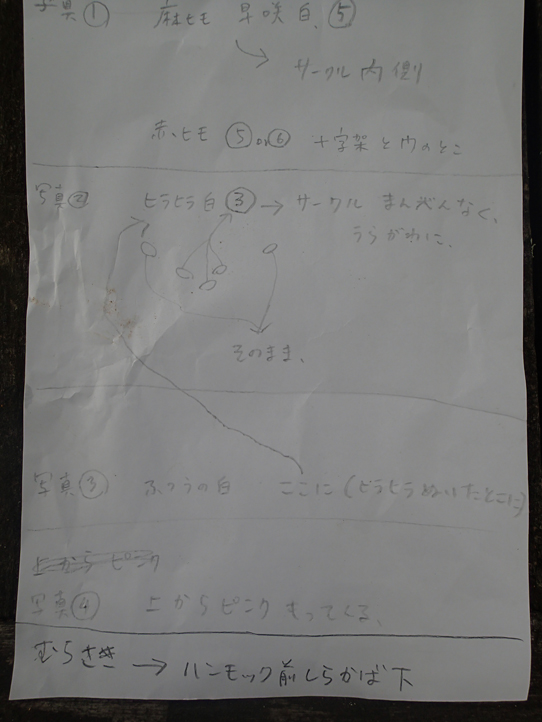 写真① 麻ヒモ 早咲白、⑤
→ サークル内側
赤ヒモ ⑤or⑥ 十字架と内のとこ
写真② ヒラヒラ白③→サークル まんべんなく、
うらがわに、
そのまま、
写真③ ふつうの白 ここに(ヒラヒラぬいたとこに)
上からピンク
写真④ 上からピンクもってくる、
むらさき → ハンモック前しらかば下